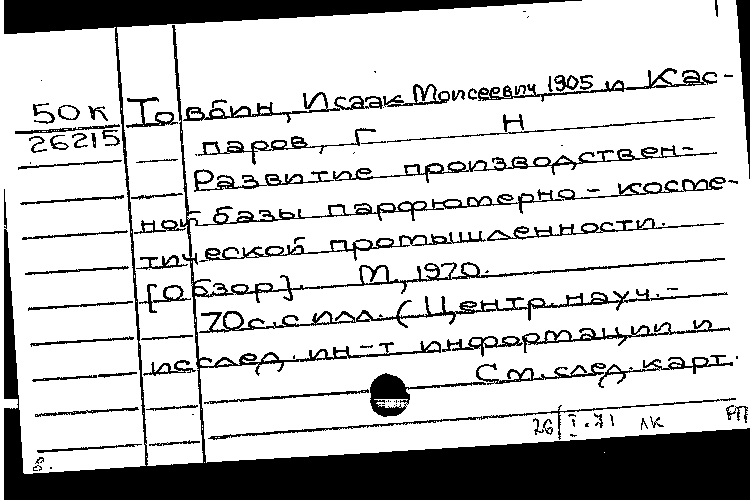 50К Товбин, Исаак Моисеевич, 1905 и Кас-
26215 паров, Г Н
Развитие производствен-
ной базы парфюмерно-косте-
тической промышленности.
[Обзор]. М., 1970.
70с. с илл. (Центр. науч.-
исслед. ин-т информации и
См. след. карт.
26/I-71 ЛК РП